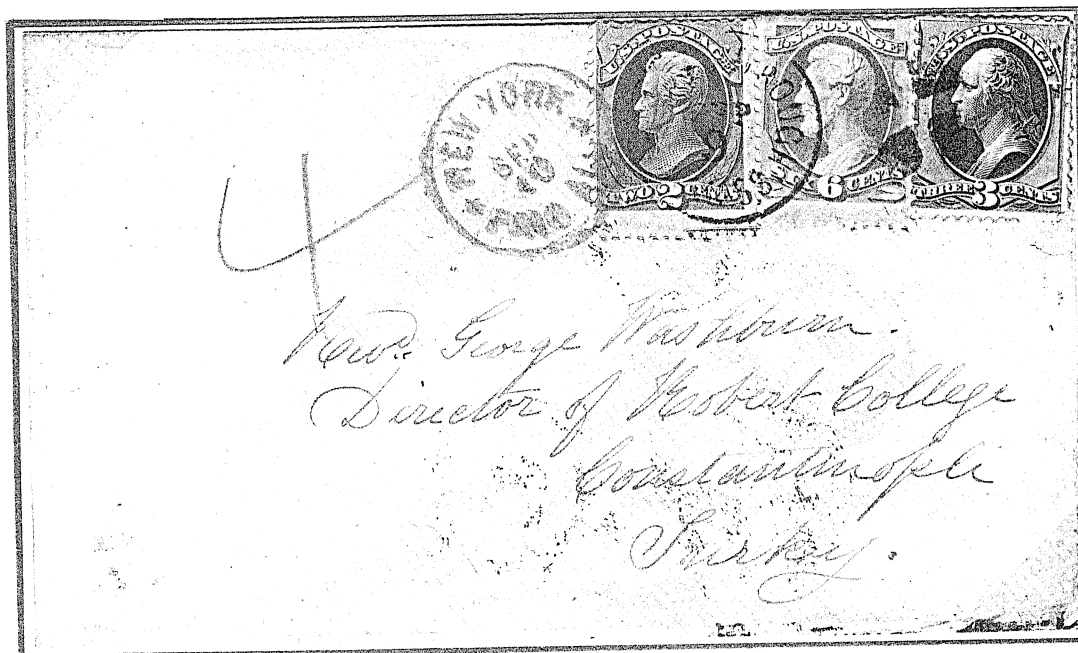 NEW YORK
PAID ALL
U.S. POSTAGE
TWO 2 CENTS
U.S. POSTAGE
SIX 6 CENTS
U.S. POSTAGE
THREE 3 CENTS
4
Revd. George Washburn.
Director of Robert College
Constantinople
Turkey.